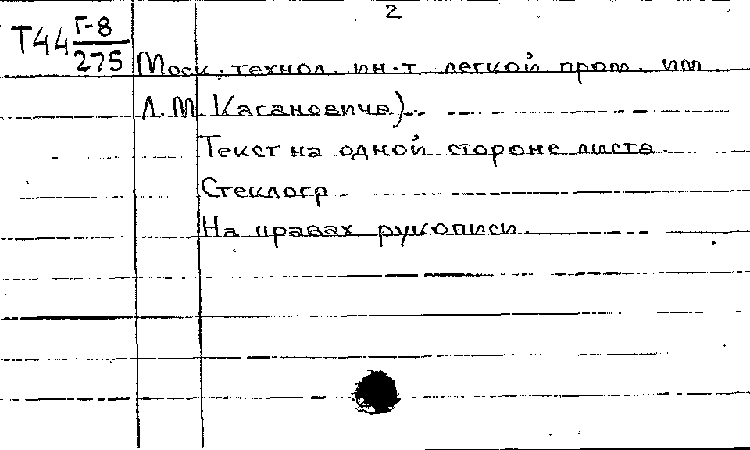 2
Т44 Г-8
275
Моск. технол. ин-т легкой пром. им.
Л.М. Кагановича).
Текст на одной стороне листа.
Стеклогр.
На правах рукописи.